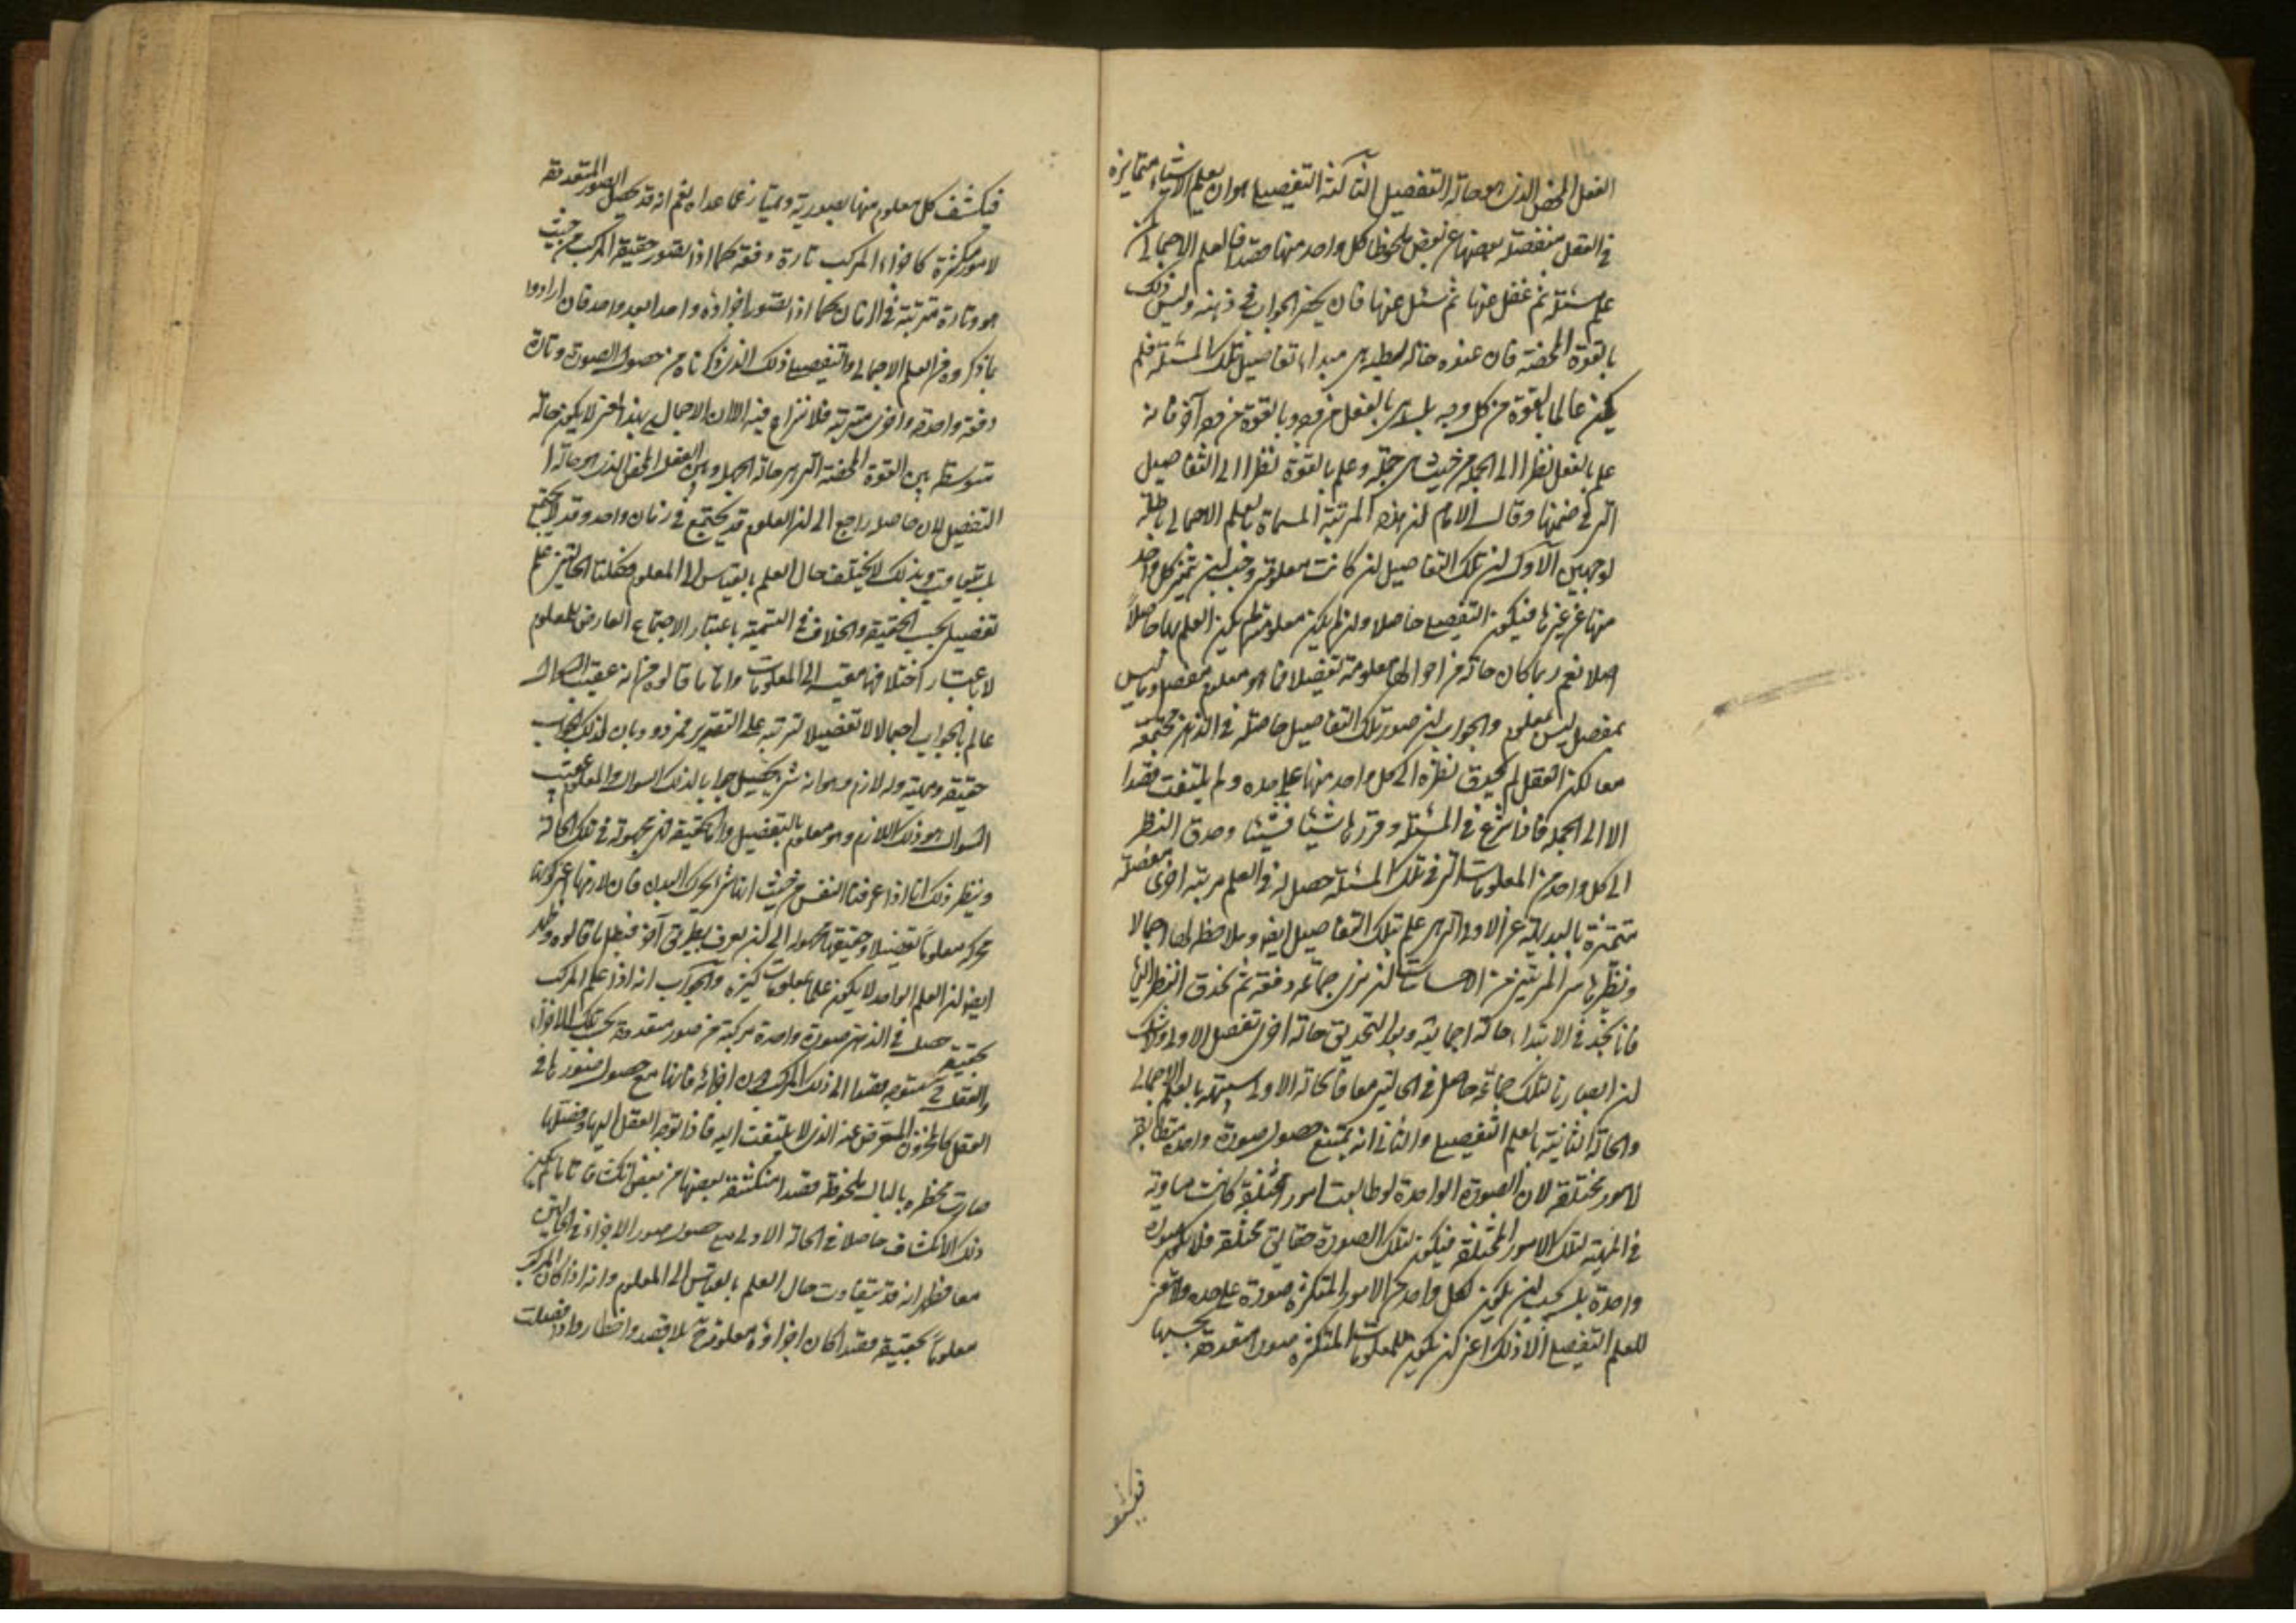 الفعل المحض الذى هو حالة التفصيل الثالثة التفصيلى هو ان يعلم الاشياء متمايزة
فى العقل منفصلة بعضها عن بعض ملحوظا كل واحد منها قصدا فالعلم الاجمالى كمن
علم مسئلة ثم غفل عنها ثم سئل عنها فان يحضر الجواب فى ذهنه وليس ذلك
بالقوة المحضة فان عنده حالة بسيطة هى مبداء تفاصيل تلك المسئلة فلم
يكن عالما بالقوة من كل وجه بل هى بالفعل من وجه وبالقوة من وجه آخر فانه
علم بالفعل نظرا الى الجملة من حيث هى جملة وعلم بالقوة نظرا الى التفاصيل
التى فى ضمنها وقال الامام ان هذه المرتبة المسماة بالعلم الاجمالى باطلة
لوجهين الاول ان تلك التفاصيل ان كانت معلومة وجب ان تميز كل واحد
منها عن غيرها فيكون التفصيلى حاصلا وان لم يكن معلومة لم يكن العلم بها حاصلا
اصلا نعم ربما كان حالة من احوالها معلومة تفصيلا فما هو معلوم مفصل وما ليس
بمفصل ليس بمعلوم والجواب ان صور تلك التفاصيل حاصلة فى الذهن مجتمعة
معا لكن العقل لم يحدق نظره الى كل واحد منها على حده ولم يلتفت قصدا
الا الى الجملة فاذا شرع فى المسئلة وقررها شيئا فشيئا وحدق النظر
الى كل واحد من المعلومات التى فى تلك المسئلة حصل له فى العلم مرتبة اخرى مفصلة
متميزة بالبديهة عن الاولى التى هى علم بتلك التفاصيل ايضا وملاحظ لها اجمالا
ونظير هاتين المرتبتين من الاحساسات ان نرى جماعة دفعة ثم نحدق النظر اليها
فانا نجد فى الابتداء حالة اجمالية وبعد التحديق حالة اخرى تفصل الاولى ولا شك
ان ابصارنا لتلك جماعة حاصل فى الحالتين معا فالحالة الاولى شبيهة بالعلم الاجمالى
والحالة الثانية بالعلم التفصيلى والثانى انه يمتنع حصول صورة واحدة مطابقة
لامور مختلفة لان الصورة الواحدة لو طابقت امورا مختلفة كانت مساوية
فى المهية لتلك الامور المختلفة فيكون لتلك الصورة حقايق مختلفة فلا يكون صورة
واحدة بل يجب ان يكون لكل واحد من الامور المتكثرة صورة على حده ولا معنى
للعلم التفصيلى الا ذلك اعنى ان يكون للمعلومات المتكثرة صور متعددة بحسبها
فيكشف
فيكشف كل معلوم منها بصورته ويمتاز عما عداه نعم انه قد يحصل الصور المتعددة
لامور متكثرة كاجزاء المركب تارة دفعة كما اذا تصور حقيقة المركب من حيث
هو وتارة مترتبة فى الزمان كما اذا تصور اجزاؤه واحدا بعد واحد فان ارادوا
بما ذكروه من العلم الاجمالى والتفصيلى ذلك الذى ذكرناه من حصول الصورة تارة
دفعة واحدة واخرى مترتبة فلا نزاع فيه الا ان الاجمالى بهذا المعنى لا يكون حالة
متوسطة بين القوة المحضة التى هى حالة الجهل وبين الفعل المحض الذى هو حالة
التفصيل لان حاصله راجع الى ان العلوم قد يجتمع فى زمان واحد وقد لا يجتمع
بل يتعاقب وبذلك لا يختلف حال العلم بالقياس الى المعلوم فكلتا الحالتين علم
تفصيلى بحسب الحقيقة والخلاف فى التسمية باعتبار الاجتماع العارض للمعلوم
لا باعتبار اختلافها مقيسة الى المعلومات واما ما قالوه من انه عقيب السوال
عالم بالجواب اجمالا لا تفصيلا لترتبه على التقرير فمردود بان لذلك الجواب
حقيقة ومهية وله لازم وهو انه شئ يحصل جوابا لذلك السوال والمعلوم عقيب
السوال هو ذلك اللازم وهو معلوم بالتفصيل واما الحقيقة فهى مجهولة فى تلك الحالة
ونظير ذلك انا اذا عرفنا النفس من حيث انها شئ يحرك البدن فان لازمها اعنى كونها
محركة معلوما تفصيلا وحقيقتها مجهولة الى ان يعرف بطريق آخر فبطل ما قالوه وظهر
ايضا ان العلم الواحد لا يكون علما بمعلومات كثيرة والجواب انه اذا علم المركب
بحقيقته حصل فى الذهن صورة واحدة مركبة من صور متعددة بحسب تلك الاجزاء
والعقل ح متوجه قصدا الى ذلك المركب دون اجزائه فانها مع حصول صورها فى
العقل كالمخزون المعرض عنه الذى لا يلتفت اليه فاذا توجه العقل اليها وفصلها
صارت مخطرة بالبال ملحوظة قصدا منكشفة بعضها من بعض انكشافا تاما لم يكن
ذلك الانكشاف حاصلا فى الحالة الاولى مع حصول صور الاجزاء فى الحالتين
معا فظهر انه قد يتفاوت حال العلم بالقياس الى المعلوم وانه اذا كان المركب
معلوما بحقيقته قصدا كان اجزاؤه معلومة ح بلا قصد واخطار واذا فصلت